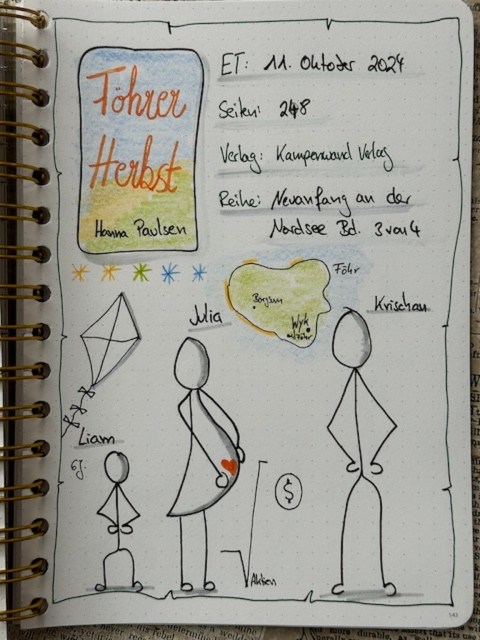 Föhrer
Herbst
Hanna Paulsen
ET: 11. Oktober 2024
Seiten: 248
Verlag: Kampenwand Verlag
Reihe: Neuanfang an der
Nordsee Bd. 3 von 4
Föhr
Borgsum
Wyk
auf Föhr
Mia
Krischan
Liam
6J.
$
Aktien